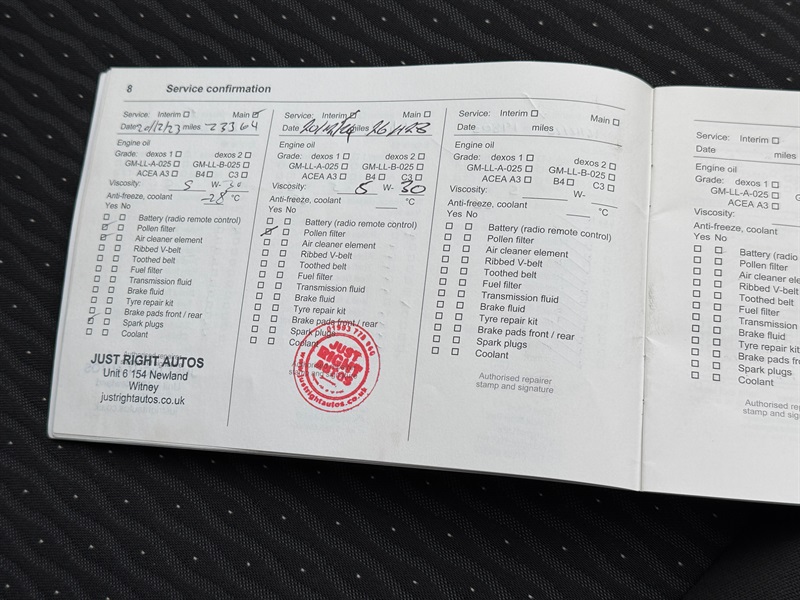 8 Service confirmation
Service: Interim ☐ Main ☑
Date 20/12/23 miles 23364
Engine oil
Grade: dexos 1 ☐ dexos 2 ☐
GM-LL-A-025 ☐ GM-LL-B-025 ☐
ACEA A3 ☐ B4 ☐ C3 ☐
Viscosity: 5 W- 30
Anti-freeze, coolant -28 °C
Yes No
☐ ☐ Battery (radio remote control)
☑ ☐ Pollen filter
☑ ☐ Air cleaner element
☐ ☐ Ribbed V-belt
☐ ☐ Toothed belt
☐ ☐ Fuel filter
☐ ☐ Transmission fluid
☐ ☐ Brake fluid
☐ ☐ Tyre repair kit
☐ ☐ Brake pads front / rear
☑ ☐ Spark plugs
☐ ☐ Coolant
JUST RIGHT AUTOS
Unit 6 154 Newland
Witney
justrightautos.co.uk
Service: Interim ☑ Main ☐
Date 20/12/24 miles
Engine oil
Grade: dexos 1 ☐ dexos 2 ☐
GM-LL-A-025 ☐ GM-LL-B-025 ☐
ACEA A3 ☐ B4 ☐ C3 ☐
Viscosity: 5 W- 30
Anti-freeze, coolant °C
Yes No
☐ ☐ Battery (radio remote control)
☑ ☐ Pollen filter
☐ ☐ Air cleaner element
☐ ☐ Ribbed V-belt
☐ ☐ Toothed belt
☐ ☐ Fuel filter
☐ ☐ Transmission fluid
☐ ☐ Brake fluid
☐ ☐ Tyre repair kit
☐ ☐ Brake pads front / rear
☐ ☐ Spark plugs
☐ ☐ Coolant
stamp and signature
JUST
RIGHT
AUTOS
www.justrightautos.co.uk
Service: Interim ☐ Main ☐
Date miles
Engine oil
Grade: dexos 1 ☐ dexos 2 ☐
GM-LL-A-025 ☐ GM-LL-B-025 ☐
ACEA A3 ☐ B4 ☐ C3 ☐
Viscosity: W-
Anti-freeze, coolant °C
Yes No
☐ ☐ Battery (radio remote control)
☐ ☐ Pollen filter
☐ ☐ Air cleaner element
☐ ☐ Ribbed V-belt
☐ ☐ Toothed belt
☐ ☐ Fuel filter
☐ ☐ Transmission fluid
☐ ☐ Brake fluid
☐ ☐ Tyre repair kit
☐ ☐ Brake pads front / rear
☐ ☐ Spark plugs
☐ ☐ Coolant
Authorised repairer
stamp and signature
Service: Interim ☐
Date miles
Engine oil
Grade: dexos 1 ☐
GM-LL-A-025 ☐
ACEA A3 ☐
Viscosity:
Anti-freeze, coolant
Yes No
☐ ☐ Battery (radio
☐ ☐ Pollen filter
☐ ☐ Air cleaner
☐ ☐ Ribbed V-belt
☐ ☐ Toothed belt
☐ ☐ Fuel filter
☐ ☐ Transmission
☐ ☐ Brake fluid
☐ ☐ Tyre repair kit
☐ ☐ Brake pads
☐ ☐ Spark plugs
☐ ☐ Coolant
Authorised
stamp and